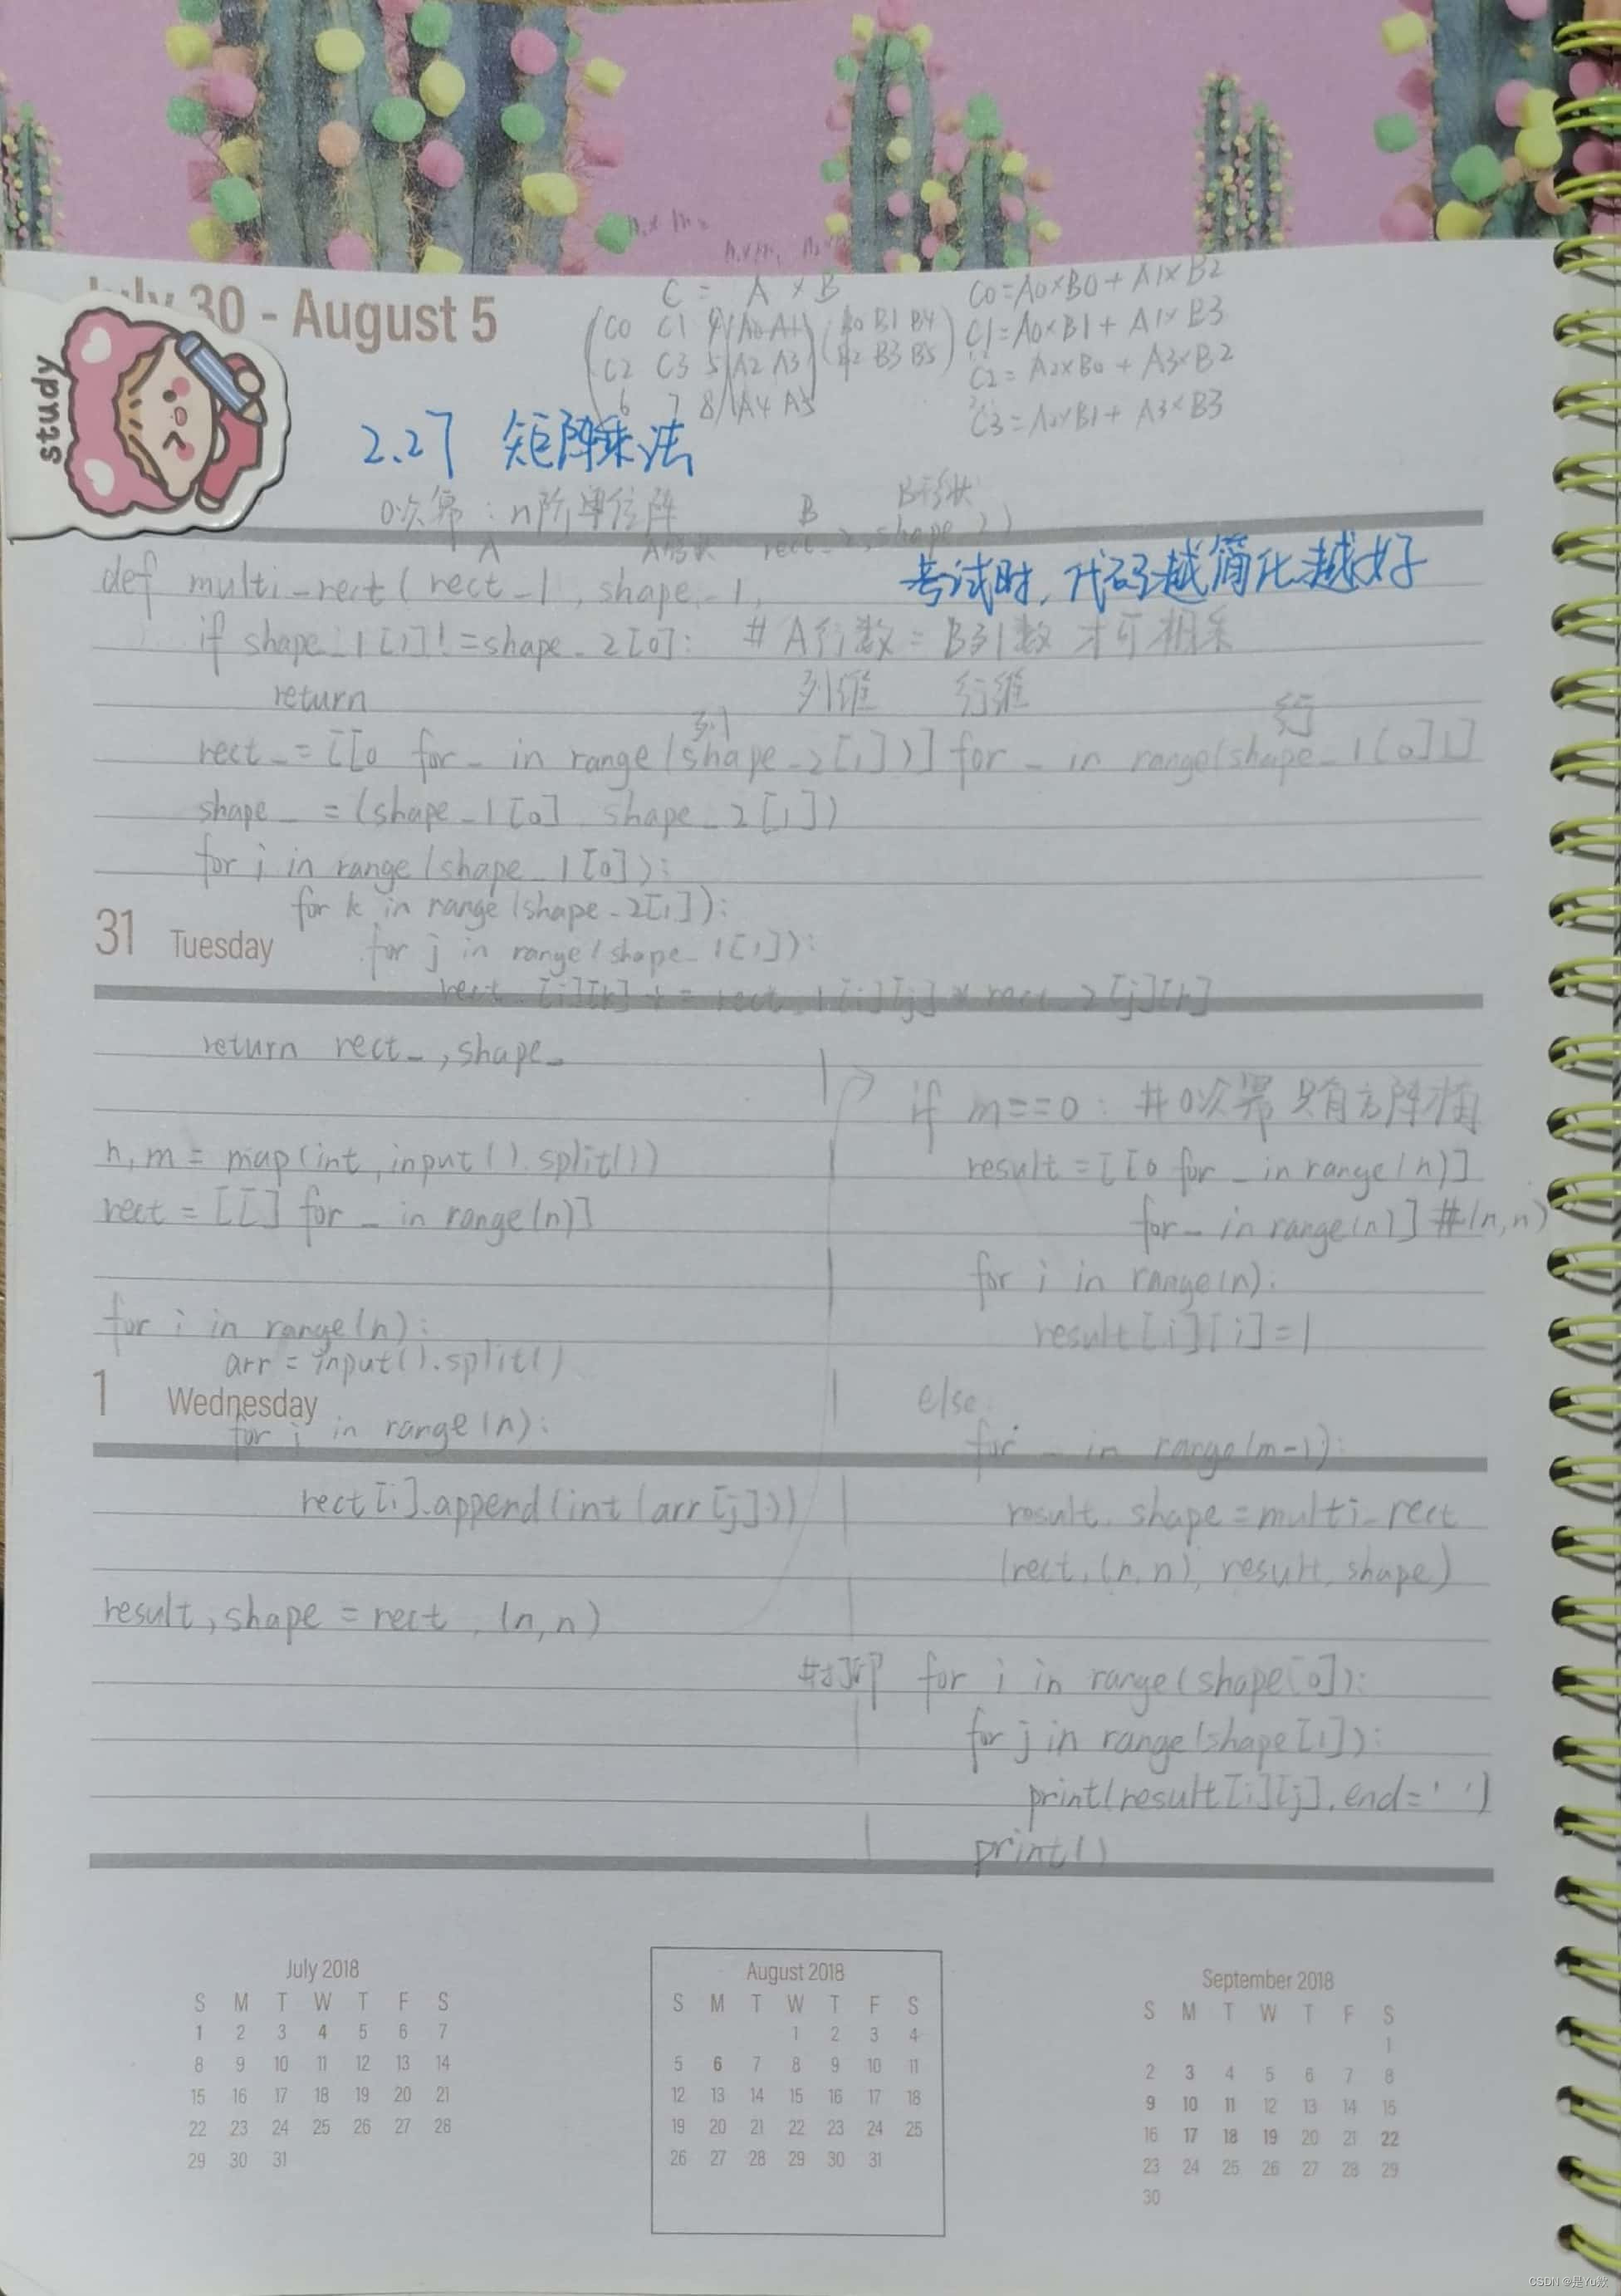 C = A × B
C0 = A0×B0 + A1×B2
July 30 - August 5
C0 C1 4 A0 A1 B0 B1 B4
C1 = A0×B1 + A1×B3
C2 C3 5 A2 A3 B2 B3 B5
C2 = A2×B0 + A3×B2
6 7 8 A4 A5
C3 = A2×B1 + A3×B3
study
2.27 矩阵乘法
0次幂：n阶单位阵
B B形状
A A形状 rect_2, shape_2)
def multi_rect(rect_1, shape_1,
考试时，代码越简化越好
if shape_1[1]!=shape_2[0]: # A行数=B列数 才可相乘
return 列维 行维
列 行
rect_=[[0 for _ in range(shape_2[1])] for _ in range(shape_1[0])]
shape_ = (shape_1[0], shape_2[1])
for i in range(shape_1[0]):
for k in range(shape_2[1]):
31 Tuesday
for j in range(shape_1[1]):
rect_[i][k] += rect_1[i][j] * rect_2[j][k]
return rect_, shape_
n, m = map(int, input().split())
rect = [[] for _ in range(n)]
for i in range(n):
arr = input().split()
1 Wednesday
for j in range(n):
rect[i].append(int(arr[j]))
result, shape = rect, (n, n)
if m==0: #0次幂 只有方阵才有
result = [[0 for _ in range(n)]
for _ in range(n)] #(n,n)
for i in range(n):
result[i][i]=1
else:
for _ in range(m-1):
result, shape = multi_rect
(rect, (n, n), result, shape)
#打印 for i in range(shape[0]):
for j in range(shape[1]):
print(result[i][j], end=' ')
print()
July 2018
S M T W T F S
1 2 3 4 5 6 7
8 9 10 11 12 13 14
15 16 17 18 19 20 21
22 23 24 25 26 27 28
29 30 31
August 2018
S M T W T F S
1 2 3 4
5 6 7 8 9 10 11
12 13 14 15 16 17 18
19 20 21 22 23 24 25
26 27 28 29 30 31
September 2018
S M T W T F S
1
2 3 4 5 6 7 8
9 10 11 12 13 14 15
16 17 18 19 20 21 22
23 24 25 26 27 28 29
30
CSDN @是Yu欸